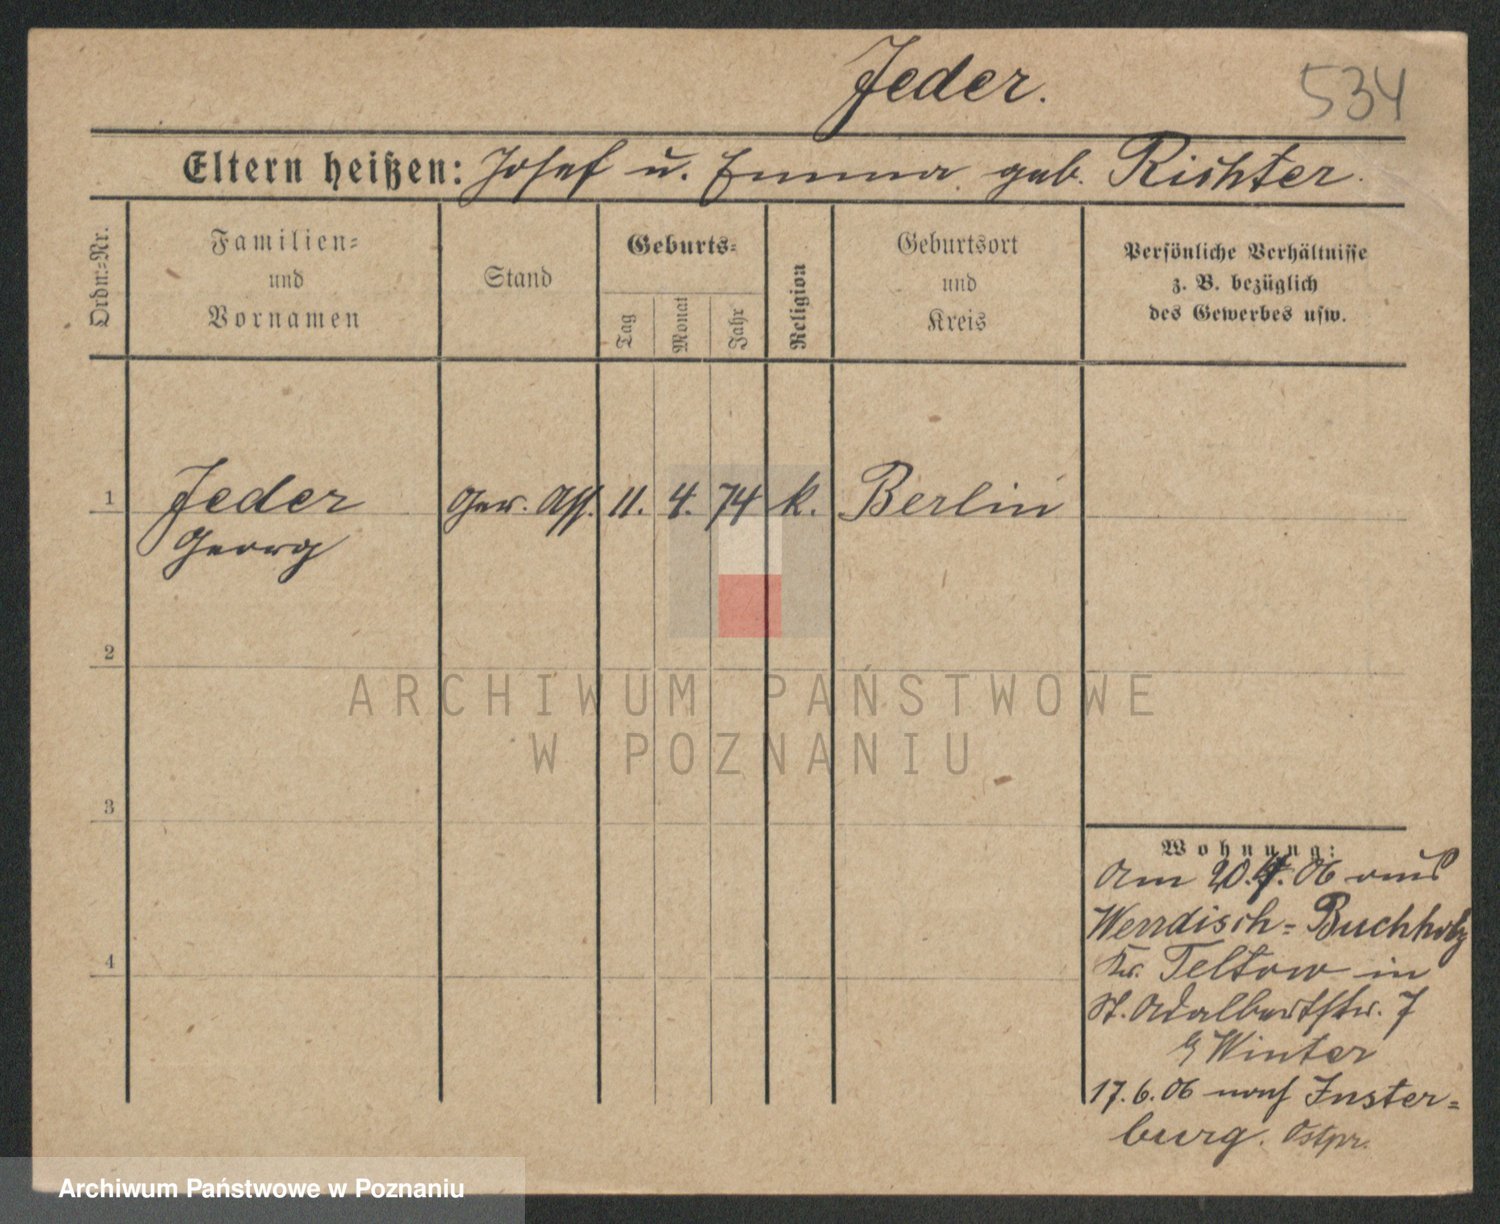 Jeder.
534
Eltern heißen: Josef u. Emma geb. Richter.
Ordn.=Nr.
Familien=
und
Vornamen
Stand
Geburts=
Tag
Monat
Jahr
Religion
Geburtsort
und
Kreis
Persönliche Verhältnisse
z. B. bezüglich
des Gewerbes usw.
1 Jeder Ger. Ass. 11. 4. 74 k. Berlin
Georg
2
3
4
Wohnung:
Am 20.4.06 aus
Wendisch=Buchholz
Kr. Teltow in
St. Adalbertstr. 7
b/ Winter
17.6.06 nach Inster=
burg. Ostpr.
ARCHIWUM PAŃSTWOWE
W POZNANIU
Archiwum Państwowe w Poznaniu